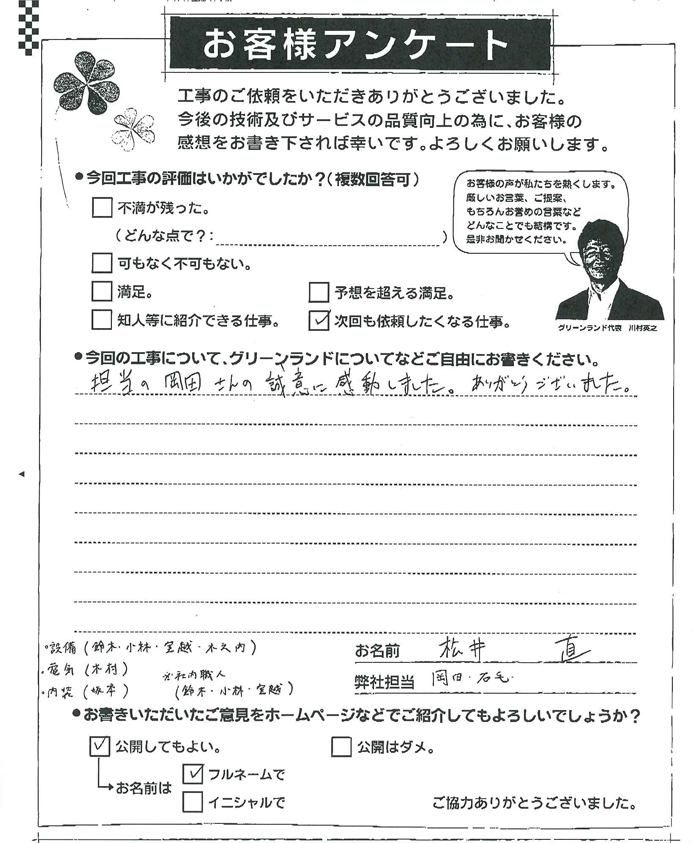 お客様アンケート
工事のご依頼をいただきありがとうございました。
今後の技術及びサービスの品質向上の為に、お客様の
感想をお書き下されば幸いです。よろしくお願いします。
●今回工事の評価はいかがでしたか？（複数回答可）
不満が残った。
（どんな点で？：　　　）
可もなく不可もない。
満足。
予想を超える満足。
知人等に紹介できる仕事。
✓次回も依頼したくなる仕事。
お客様の声が私たちを熱くします。
厳しいお言葉、ご提案、
もちろんお誉めの言葉など
どんなことでも結構です。
是非お聞かせください。
グリーンランド代表　川村英之
●今回の工事について、グリーンランドについてなどご自由にお書きください。
担当の岡田さんの誠意に感動しました。ありがとうございました。
・設備（鈴木・小林・宮越・木之内）
・電気（木村）
・内装（坂本）
※社内職人
（鈴木・小林・宮越）
お名前　松井　直
弊社担当　岡田・石毛
●お書きいただいたご意見をホームページなどでご紹介してもよろしいでしょうか？
✓公開してもよい。
公開はダメ。
お名前は
✓フルネームで
イニシャルで
ご協力ありがとうございました。